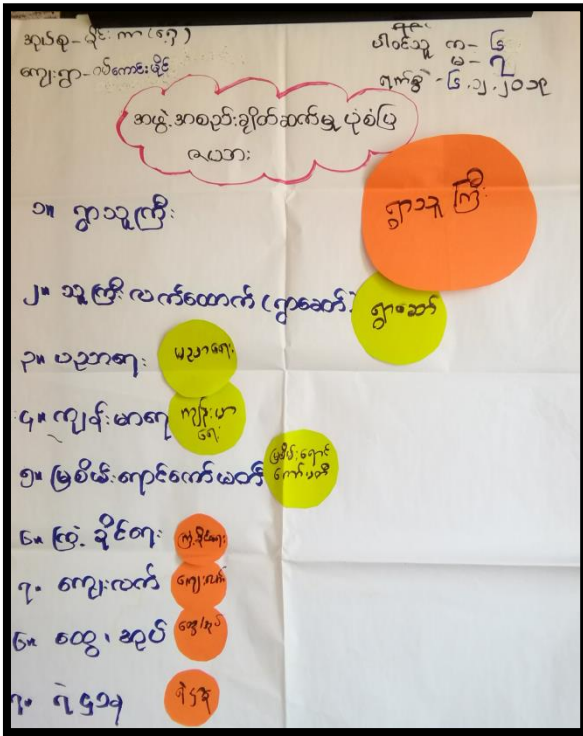 အုပ်စု - မိုင်းကာ (ရှေ့)
ပါဝင်သူ က - ၆
မ - ၇
ကျေးရွာ - ဝပ်ကောင်းမိုင်
ရက်စွဲ - ၆.၁၂.၂၀၁၉
အဖွဲ့အစည်းချိတ်ဆက်မှု ပုံစံပြ
ဇယား
၁။ ရွာသူကြီး
ရွာသူကြီး
၂။ သူကြီးလက်ထောက် (ရွာဆော်)
ရွာဆော်
၃။ ပညာရေး
ပညာရေး
၄။ ကျန်းမာရေး
ကျန်းမာ
ရေး
၅။ မြစိမ်းရောင်ကော်မတီ
မြစိမ်းရောင်
ကော်မတီ
၆။ ကြံ့ခိုင်ရေး
ကြံ့ခိုင်ရေး
၇။ ကျေးလက်
ကျေးလက်
၆။ ထွေ၊ အုပ်
ထွေ/အုပ်
၇။ ရဲဌာန
ရဲဌာန